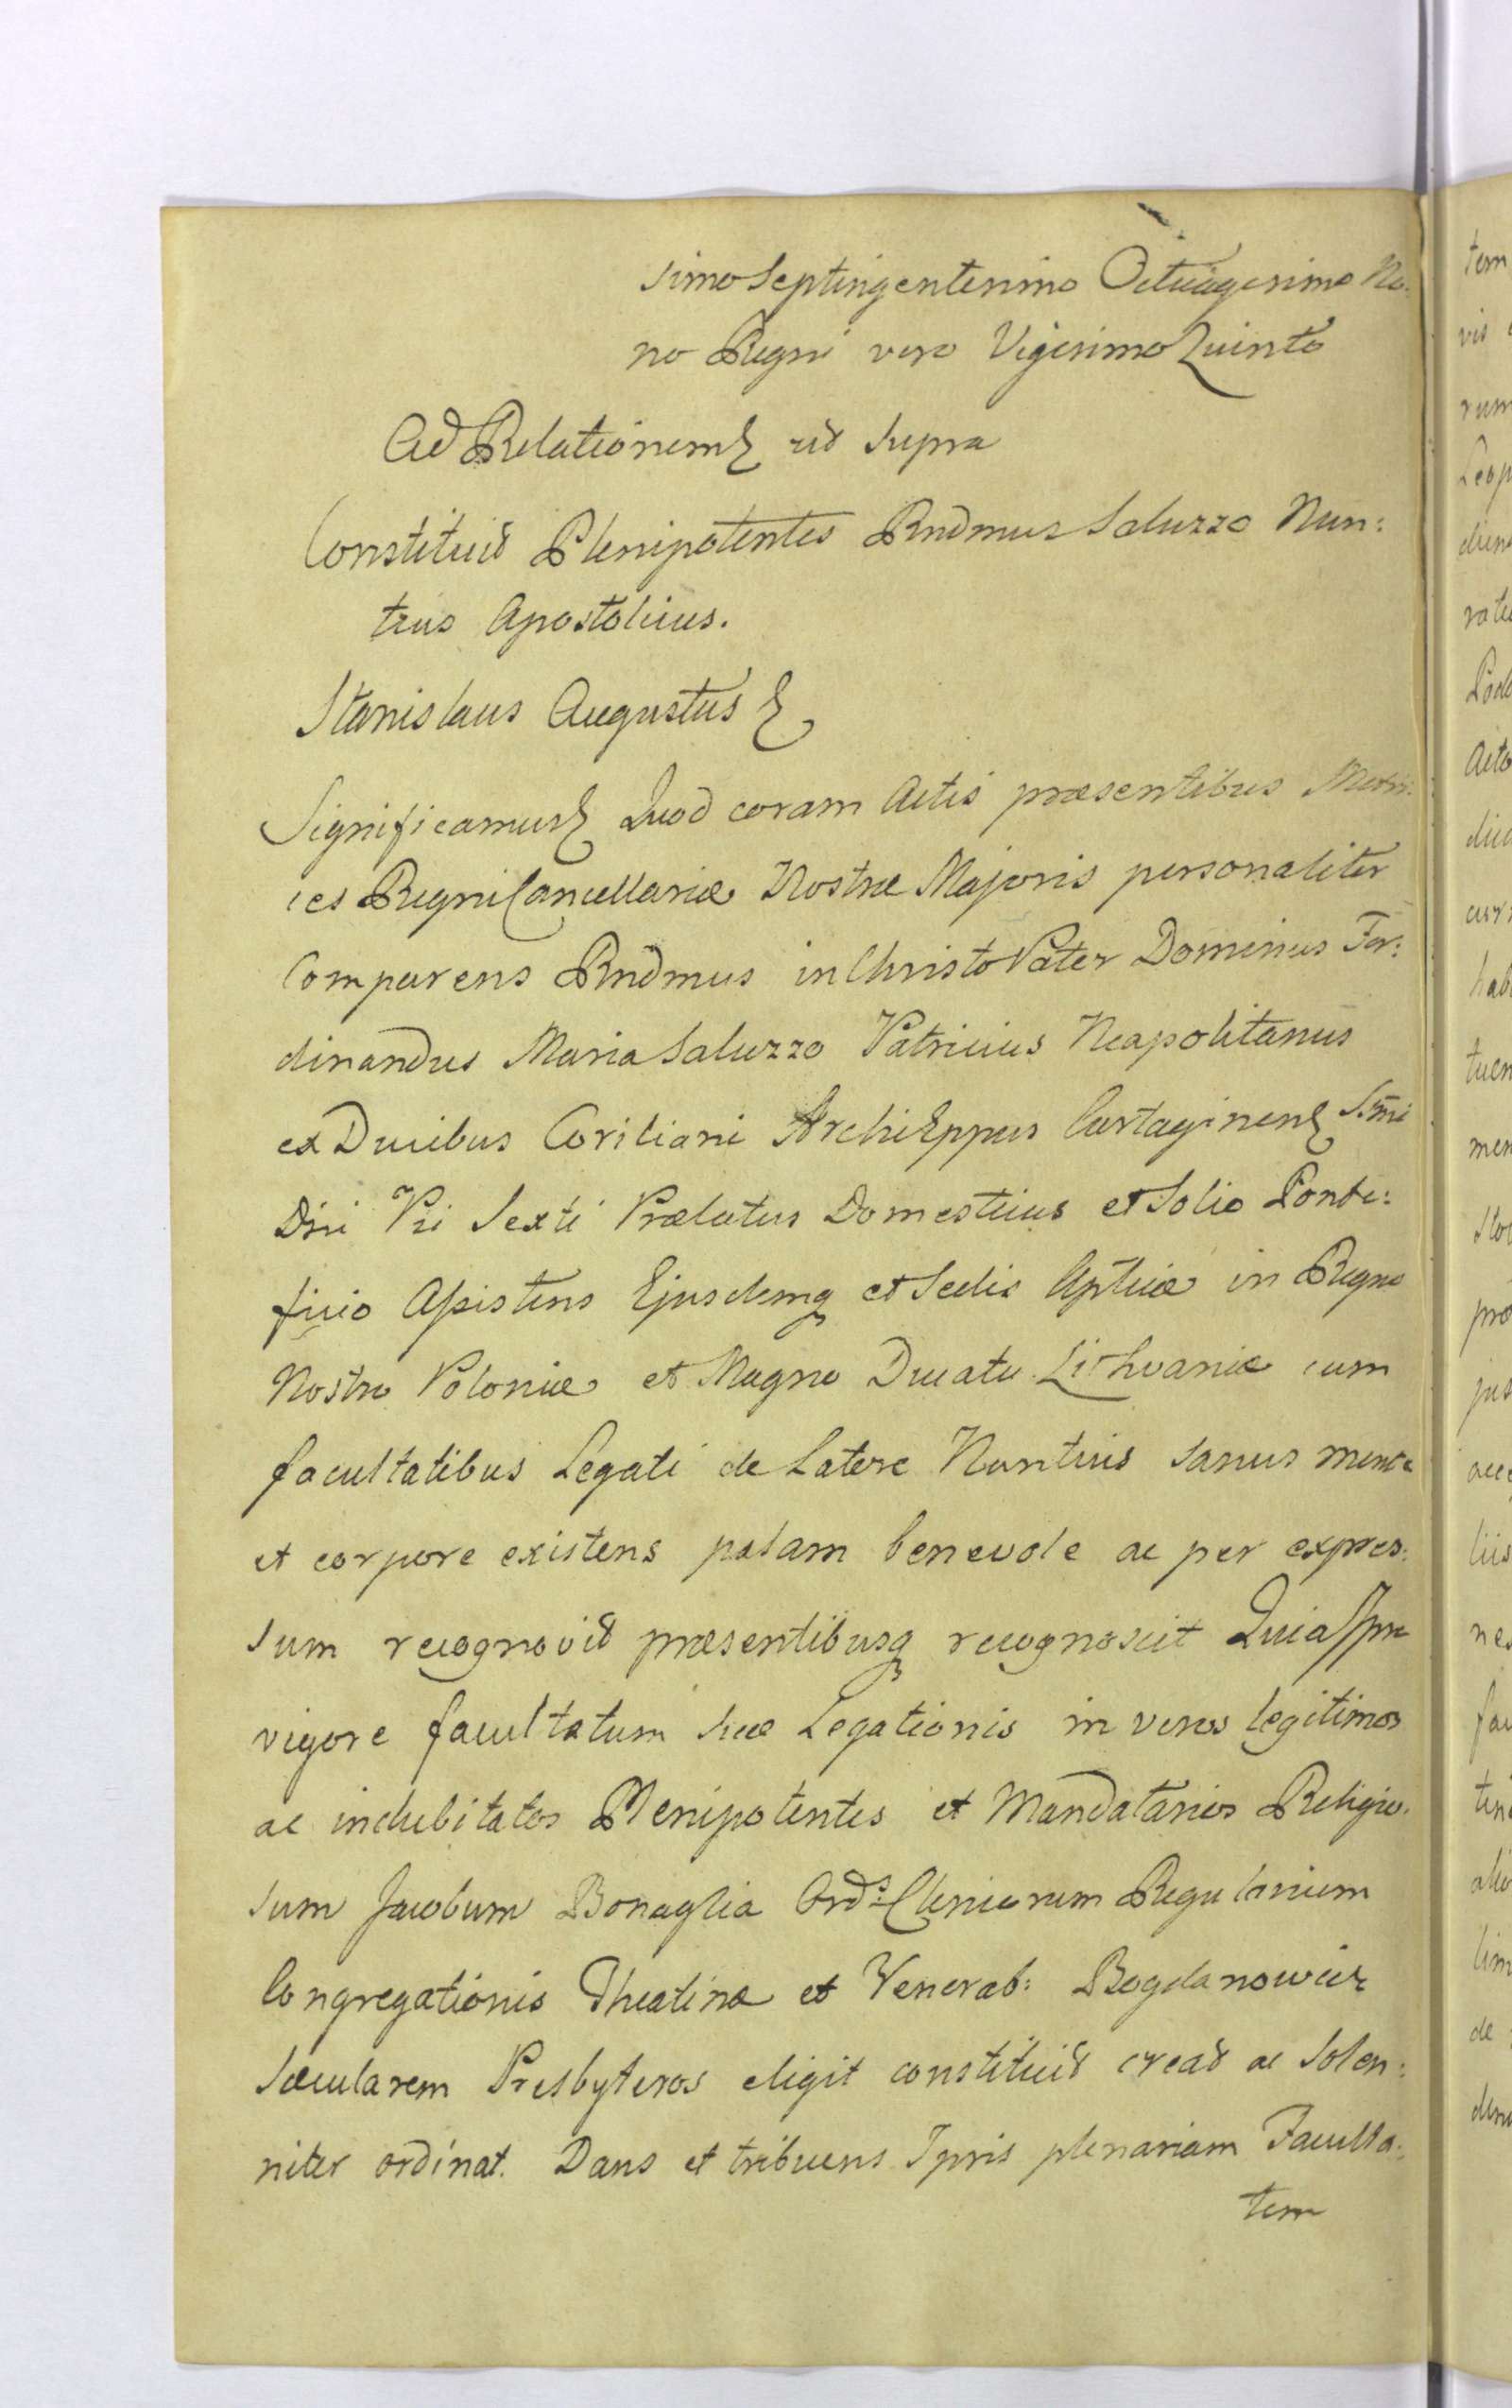 simo Septingentesimo Octuagesimo No:
no Regni vero Vigesimo Quinto
Ad Relationem& ut supra
Constituit Plenipotentes Rndmus Saluzzo Nun:
tius Apostolicus.
Stanislaus Augustus &
Significamus& Quod coram Actis præsentibus Metri:
ces Regni Cancellariæ Nostræ Majoris personaliter
Comparens Rndmus in Christo Pater Dominus Fer:
dinandus Maria Saluzzo Patricius Neapolitanus
ex Ducibus Coriliani ArchiEppus Cartaginen& Ssmi
Dni Pii Sexti Prælatus Domesticus et Solio Ponti:
ficio Assistens Ejusdemq et Sedis Apliicæ in Regno
Nostro Poloniæ et Magno Ducatu Lithvaniæ cum
facultatibus Legati de Latere Nuntius sanus mente
et corpore existens palam benevole ac per expres:
sum recognovit præsentibusq recognoscit Quia Ipse
vigore facultatum suæ Legationis in veros legitimos
ac indubitatos Plenipotentes et Mandatarios Religio:
sum Jacobum Bonaglia Ords Clericorum Regularium
Congregationis Theatinæ et Venerab: Bogdanowicz
Sæcularem Presbyteros eligit constituit creat ac Solen:
niter ordinat. Dans et tribuens Ipsis plenariam Faculta:
tem